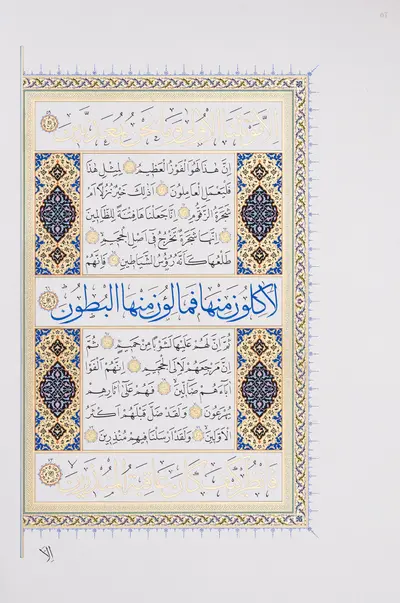 إِنَّ هٰذَا لَهُوَ الْفَوْزُ الْعَظِيمُ لِمِثْلِ هٰذَا
فَلْيَعْمَلِ الْعَامِلُونَ أَذٰلِكَ خَيْرٌ نُزُلًا أَمْ
شَجَرَةُ الزَّقُّومِ إِنَّا جَعَلْنَاهَا فِتْنَةً لِلظَّالِمِينَ
إِنَّهَا شَجَرَةٌ تَخْرُجُ فِي أَصْلِ الْجَحِيمِ
طَلْعُهَا كَأَنَّهُ رُؤُسُ الشَّيَاطِينِ فَإِنَّهُمْ
لَآكِلُونَ مِنْهَا فَمَالِؤُنَ مِنْهَا الْبُطُونَ
ثُمَّ إِنَّ لَهُمْ عَلَيْهَا لَشَوْبًا مِنْ حَمِيمٍ ثُمَّ
إِنَّ مَرْجِعَهُمْ لَإِلَى الْجَحِيمِ إِنَّهُمْ أَلْفَوْا
آبَاءَهُمْ ضَالِّينَ فَهُمْ عَلَى آثَارِهِمْ
يُهْرَعُونَ وَلَقَدْ ضَلَّ قَبْلَهُمْ أَكْثَرُ
الْأَوَّلِينَ وَلَقَدْ أَرْسَلْنَا فِيهِمْ مُنْذِرِينَ
إِلَّا